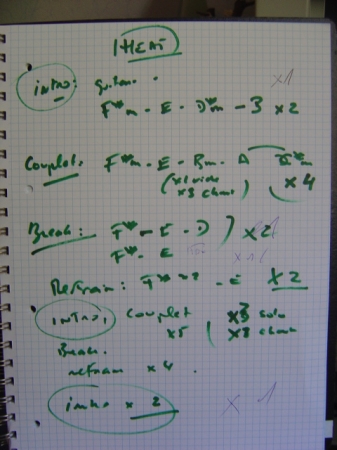 HEAT
intro: guitare. x1
F#m - E - D#m - B x2
Couplet: F#m - E - Bm - A
(x1 vide x4
x3 chant)
Break: F# - E - D x2
F# - E
Refrain: F# - E x2
intro, couplet x3 solo
x5 x8 chant
Break.
refrain x4.
intro x 2 x 1